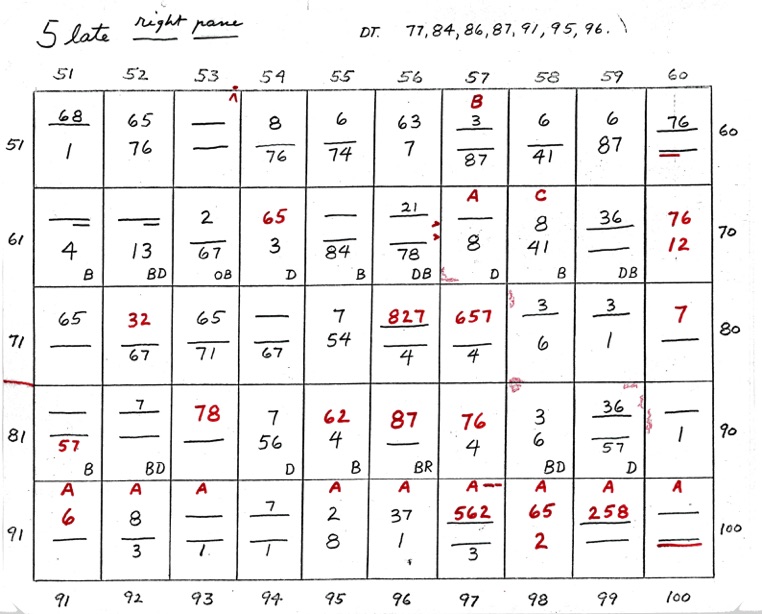 5 late right pane DT. 77, 84, 86, 87, 91, 95, 96.
51 52 53 54 55 56 57 58 59 60
B
51 68 65 — 8 6 63 3 6 6 76 60
1 76 — 76 74 7 87 41 87 —
A C
— — 2 65 — 21 — 8 36 76
61 70
4 13 67 3 84 78 8 41 — 12
B BD OB D B DB D B DB
71 65 32 65 — 7 827 657 3 3 7 80
— 67 71 67 54 4 4 6 1 —
— 7 78 7 62 87 76 3 36 —
81 90
57 — — 56 4 — 4 6 57 1
B BD D B BR BD D
A A A A A A-- A A A
6 8 — 7 2 37 562 65 258 —
91 100
— 3 1 1 8 1 3 2 — —
91 92 93 94 95 96 97 98 99 100